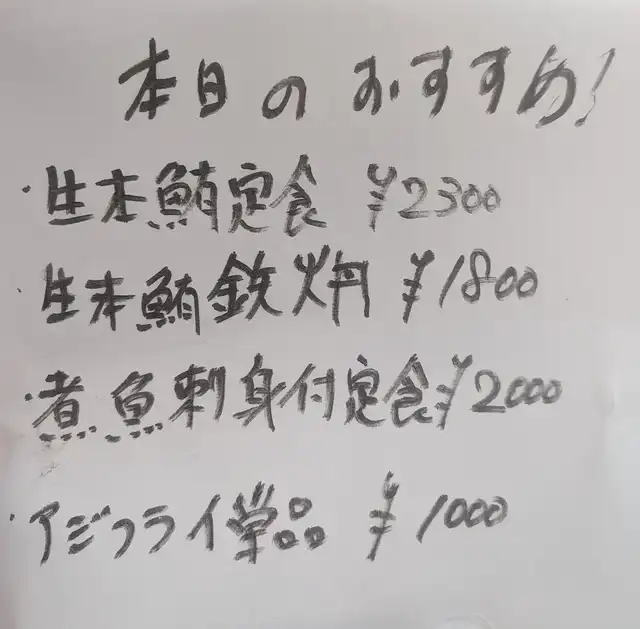 本日のおすすめ!
・生本鮪定食 ¥2300
・生本鮪鉄火丼 ¥1800
・煮魚刺身付定食¥2000
・アジフライ単品 ¥1000